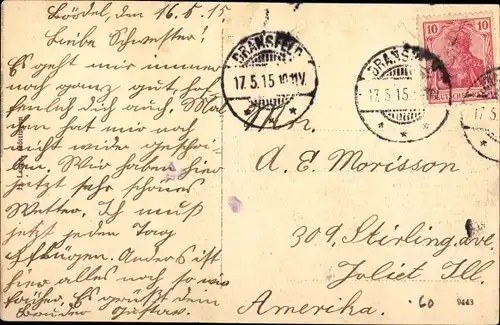 Bördel, den 16.5.15
Liebe Schwester!
Es geht mir immer
noch ganz gut, hof-
fentlich dir auch. Mal
hat mir noch
nicht wider geschrie-
ben. Wir haben hier
jetzt sehr schönes
Wetter. Ich muß
jetzt jeden Tag
Pflügen. Anders ist
hier alles noch so wie
früher. Es grüßt dein
Bruder Gustav.
DRANSFELD
17.5.15 10-11V.
* * *
DRANSFELD
17.5.15
* * *
10 10
DEUTSCHES REICH
17.5
An
A. E. Morisson
309 Stirling ave.
Joliet Ill.
Amerika.
60
9443